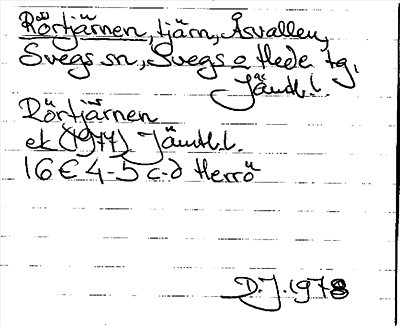 Rörtjärnen, tjärn, Åsvallen,
Svegs sn, Svegs o Hede tg,
Jämtl.l.
Rörtjärnen
ek (1977) Jämtl.l.
16 E 4-5 c-d Herrö
D.J. 1978